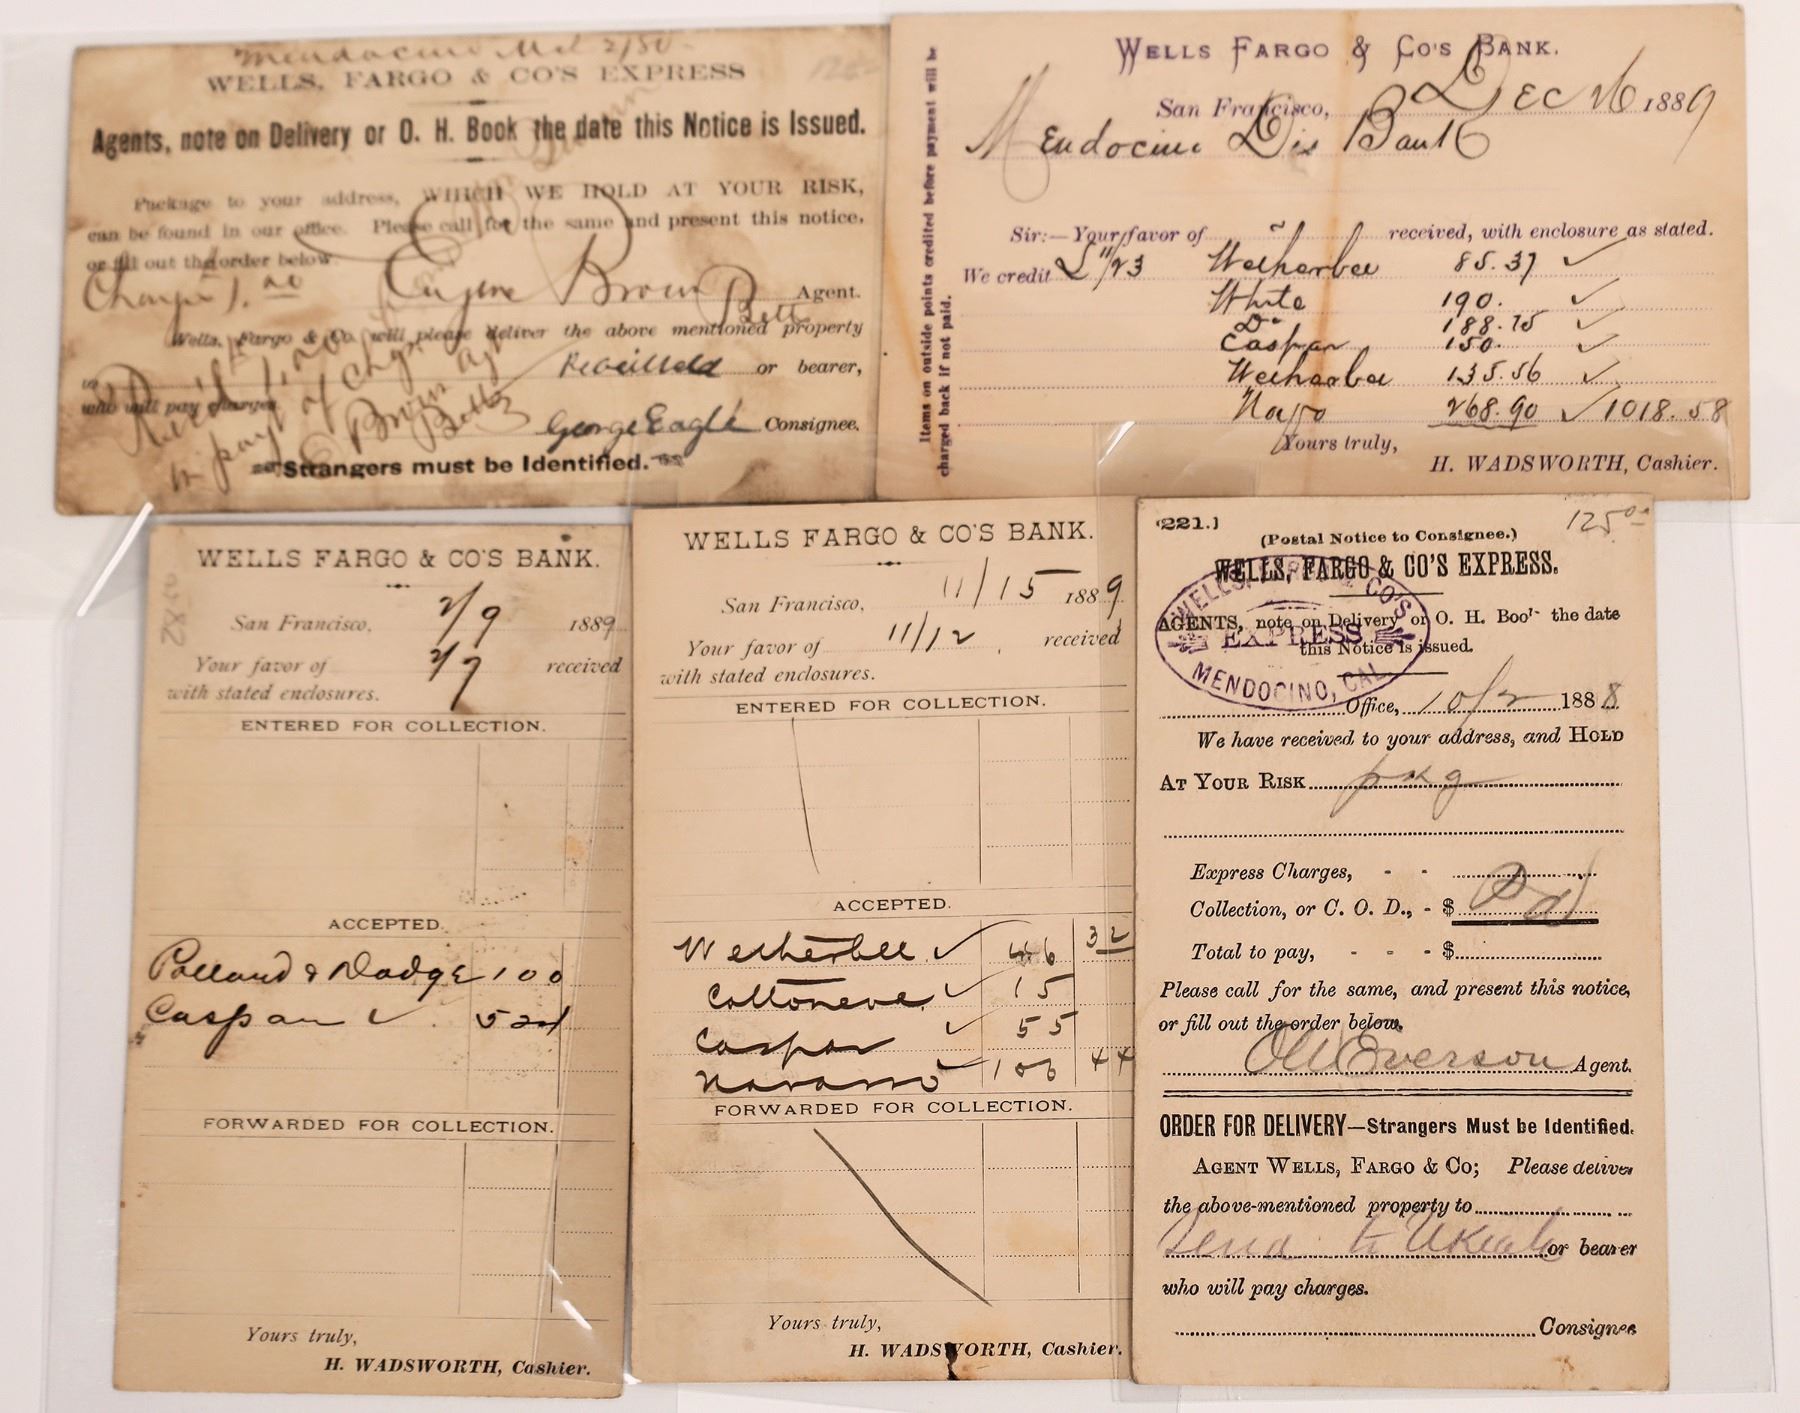 Mendocino
WELLS, FARGO & CO'S EXPRESS
Agents, note on Delivery or O. H. Book the date this Notice is Issued.
Package to your address, WHICH WE HOLD AT YOUR RISK,
can be found in our office. Please call for the same and present this notice,
or fill out the order below.
Charges 1.00 Eugene Brown Agent.
Wells, Fargo & Co. will please deliver the above mentioned property
to or bearer,
who will pay charges
Brown
George Eagle Consignee.
Strangers must be Identified.
WELLS FARGO & CO'S BANK.
San Francisco, Dec 26 1889
Mendocino Dis Bank
Sir:—Your favor of received, with enclosure as stated.
We credit 11/23 Wetherbee 85.37
White 190.
Do 188.75
Caspar 150.
Wetherbee 135.56
268.90 1018.58
Yours truly,
H. WADSWORTH, Cashier.
Items on outside points credited before payment will be
charged back if not paid.
WELLS FARGO & CO'S BANK.
San Francisco, 2/9 1889
Your favor of 2/7 received
with stated enclosures.
ENTERED FOR COLLECTION.
ACCEPTED.
& Dodge 100
Caspar 524
FORWARDED FOR COLLECTION.
Yours truly,
H. WADSWORTH, Cashier.
WELLS FARGO & CO'S BANK.
San Francisco, 11/15 1889
Your favor of 11/12 received
with stated enclosures.
ENTERED FOR COLLECTION.
ACCEPTED.
Wetherbee 46 32
Cottoneva 15
Caspar 55
Navarro 106 44
FORWARDED FOR COLLECTION.
Yours truly,
H. WADSWORTH, Cashier.
(221.) 125.00
(Postal Notice to Consignee.)
WELLS, FARGO & CO'S EXPRESS.
WELLS, FARGO & CO'S
EXPRESS
MENDOCINO, CAL.
AGENTS, note on Delivery or O. H. Book the date
this Notice is issued.
Office, 10/2 1888
We have received to your address, and HOLD
AT YOUR RISK pkg
Express Charges, - -
Collection, or C. O. D., - $ Pd
Total to pay, - - - $
Please call for the same, and present this notice,
or fill out the order below.
Everson Agent.
ORDER FOR DELIVERY—Strangers Must be Identified.
AGENT WELLS, FARGO & CO; Please deliver
the above-mentioned property to
Send to Ukiah or bearer
who will pay charges.
Consignee